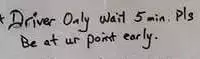 * Driver Only Wait 5 min. Pls
Be at ur point early.